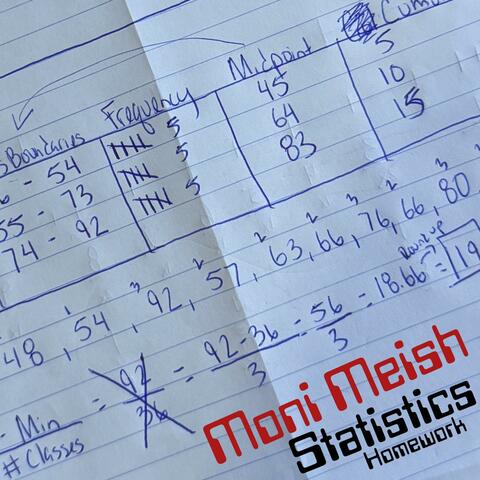 Midpoint
Frequency
Boundaries
54 5 45 5
55 - 73 5 64 10
74 - 92 5 83 15
48, 54, 92, 57, 63, 66, 76, 66, 80
1 3 2 2 3 2 3
Round up
Min = 92 = 92 - 36 = 56 = 18.66 = 19
# Classes 36 3 3
Moni Meish
Statistics
Homework